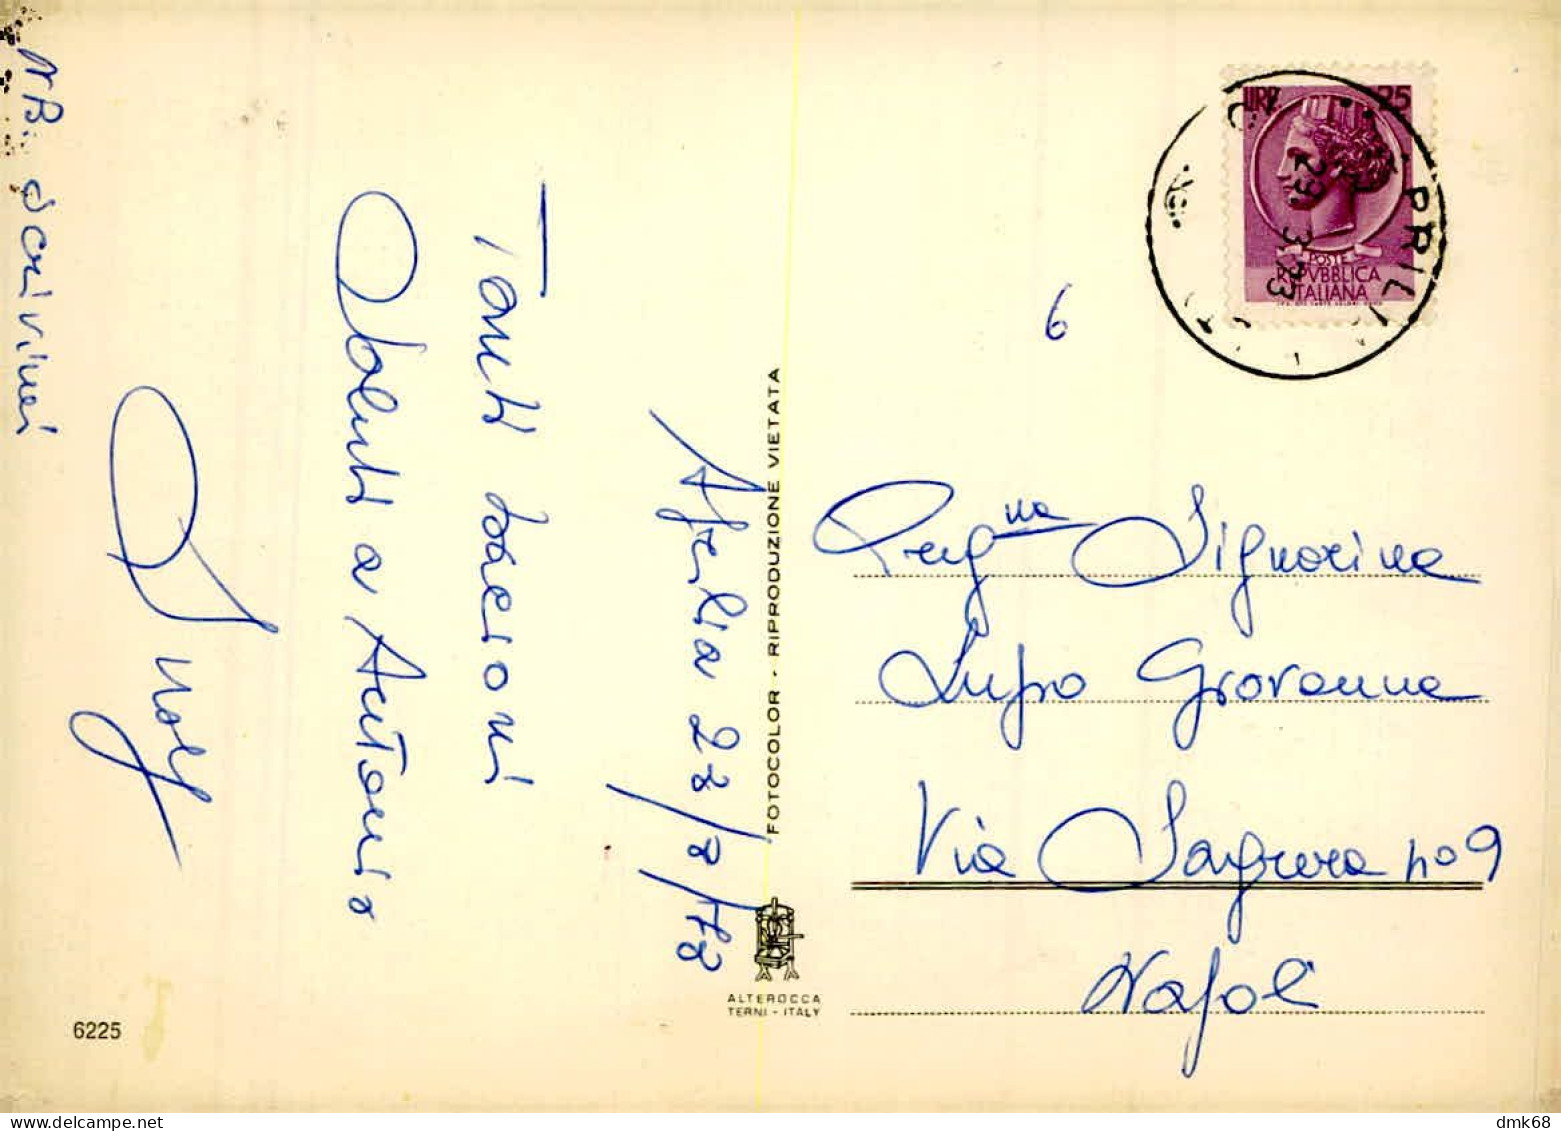 N.B. Scrivimi
Aprilia 28/3/73
Tanti bacioni
Saluti a Antonio
FOTOCOLOR - RIPRODUZIONE VIETATA
ALTEROCCA
TERNI - ITALY
6225
LIRE 25
POSTE
REPVBBLICA
ITALIANA
29.3.73
6
Preg.na Signorina
Lupo Giovanna
Via Sagrera no 9
Napoli
www.delcampe.net
dmk68